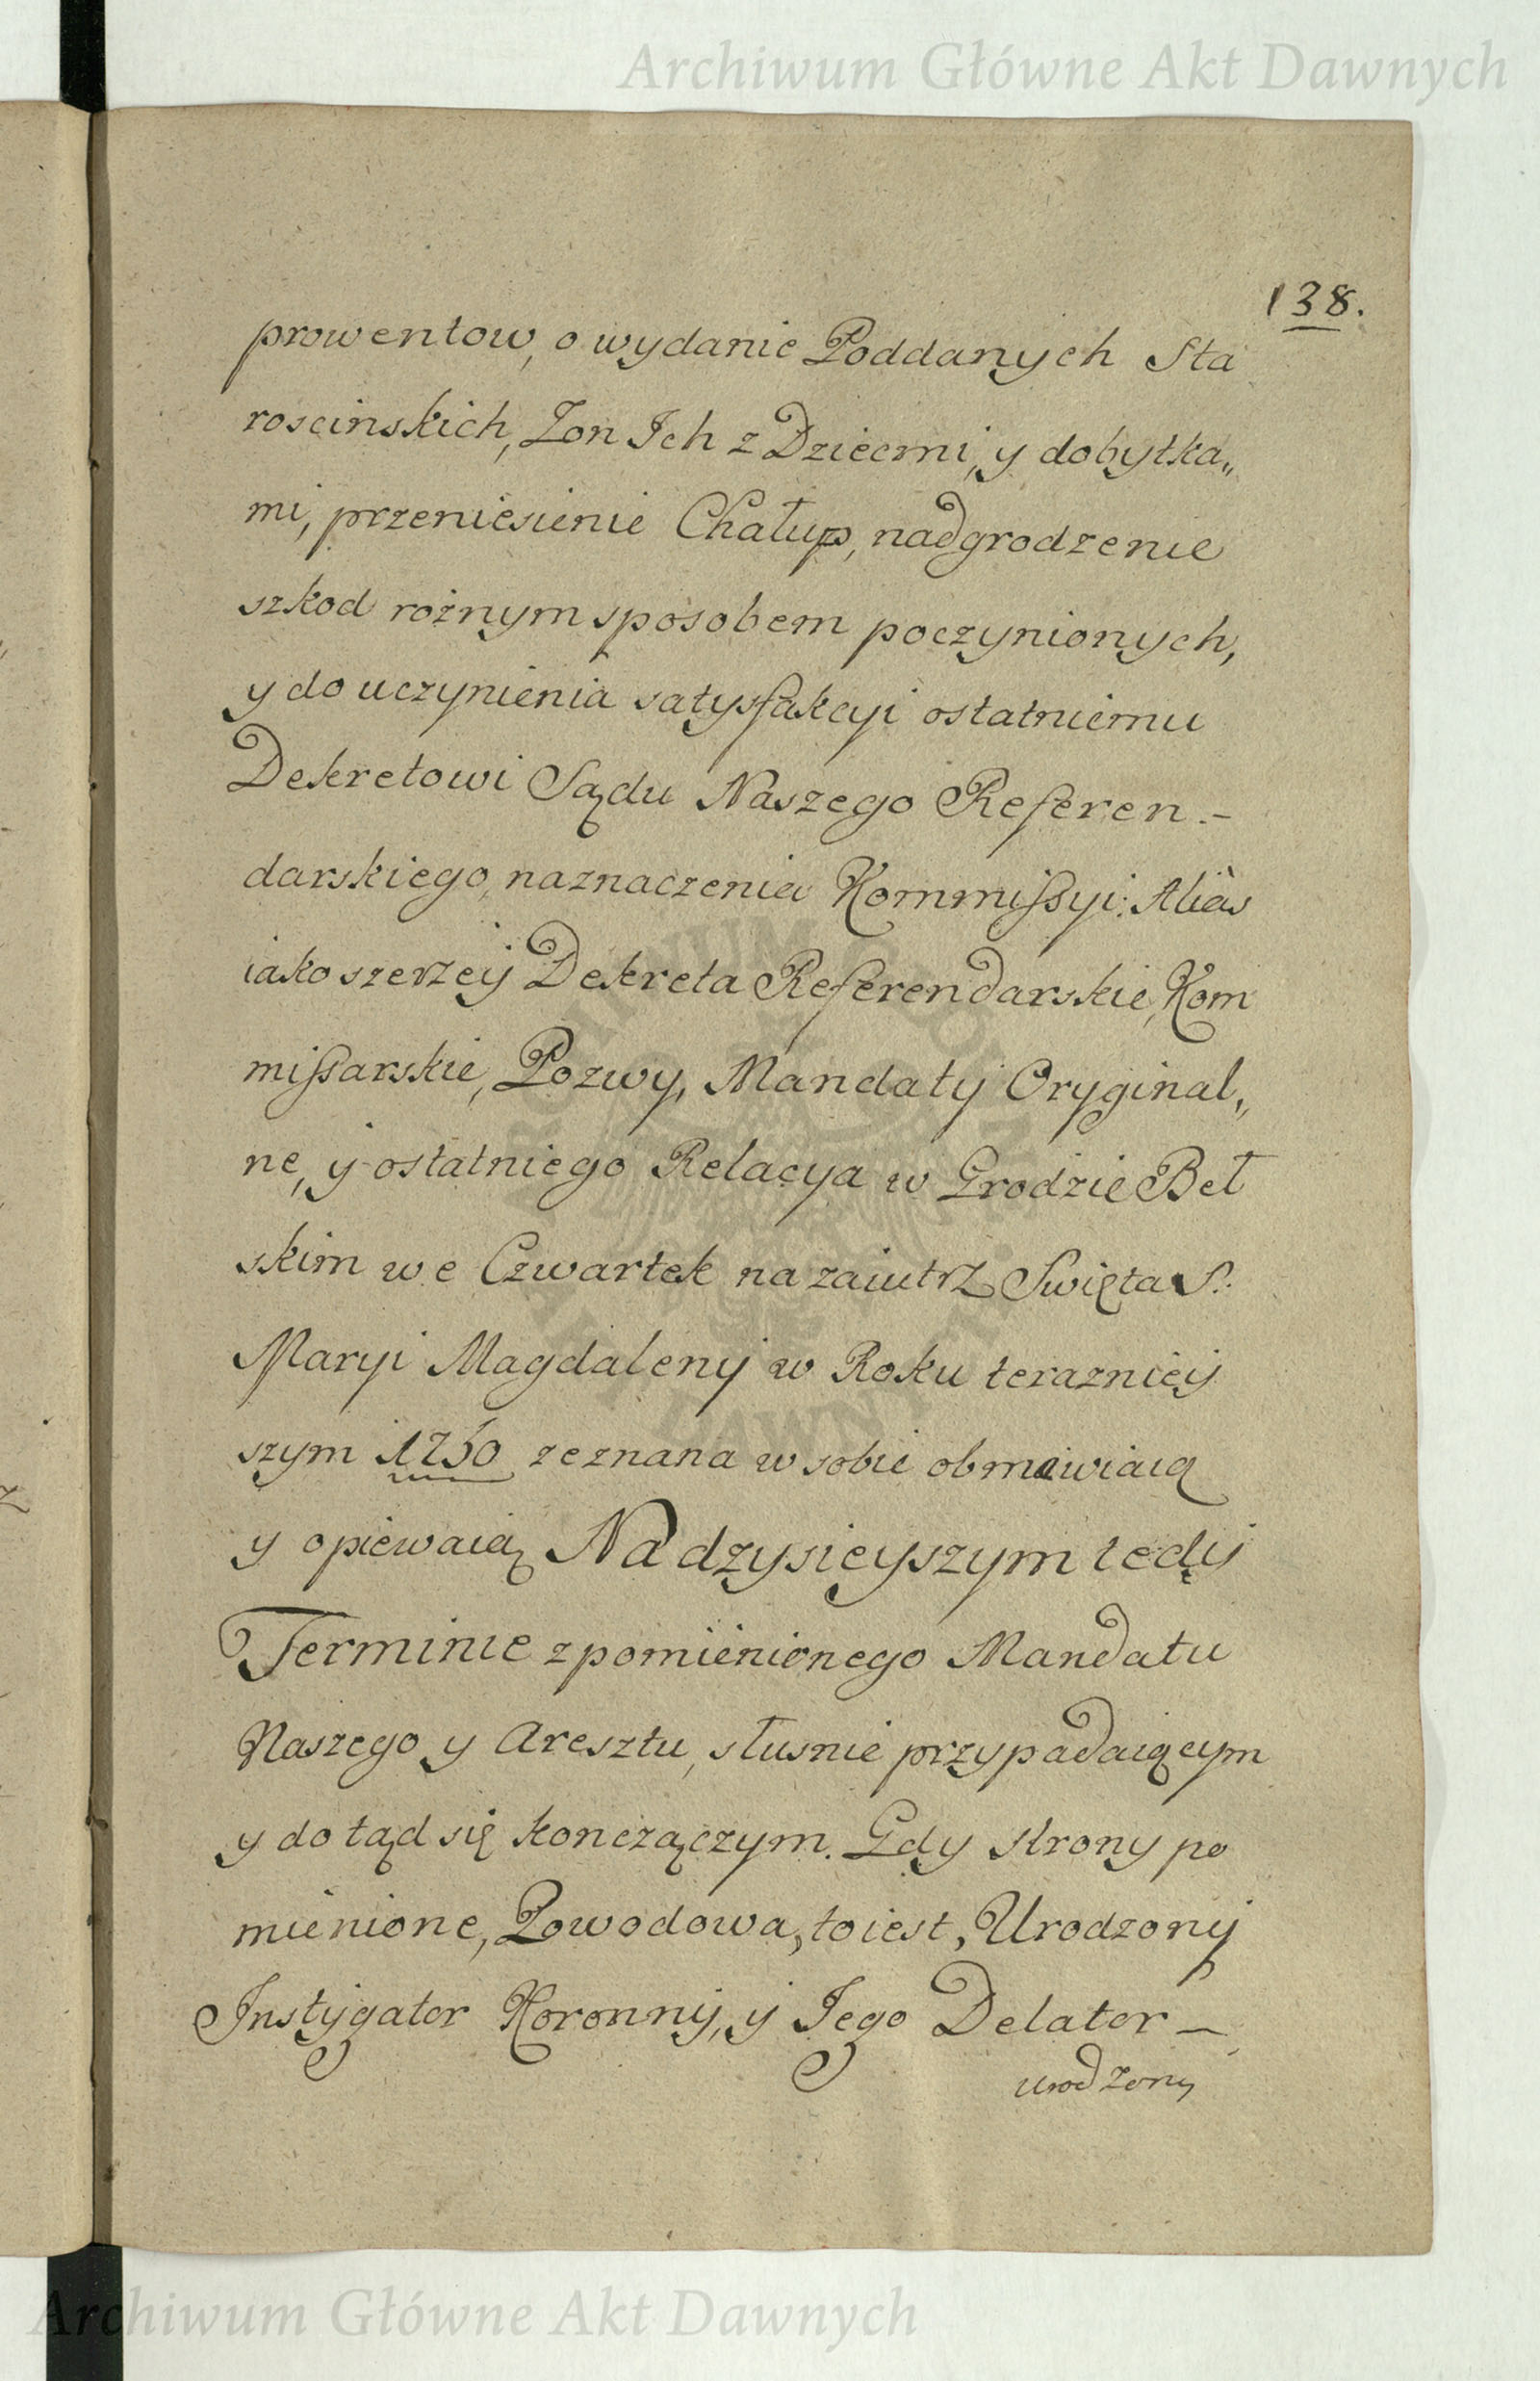 Archiwum Główne Akt Dawnych
138.
prowentow, o wydanie Poddanych Sta
roscinskich, Zon Ich z Dziecmi, y dobytka„
mi, przeniesienie Chałup, nadgrodzenie
szkod rożnym sposobem poczynionych,
y do uczynienia satysfakcyi ostatniemu
Dekretowi Sądu Naszego Referen.-
darskiego, naznaczenia Kommissyi: Alias
iako szerzey Dekreta Referendarskie, Kom
missarskie, Pozwy, Mandaty Oryginal„
ne, y ostatniego Relacya w Grodzie Beł
skim we Czwartek nazaiutrz Swięta S:
Maryi Magdaleny w Roku terazniey
szym 1750 zeznana w sobie obmawiaią
y opiewaią Na dzysieyszym tedy
Terminie z pomienionego Mandatu
Naszego y Aresztu, słusnie przypadaiącym
y do tąd się konczączym. Gdy strony po
mienione, Powodowa, to iest, Urodzony
Instygator Koronny, y Jego Delator —
urodzony
Archiwum Główne Akt Dawnych